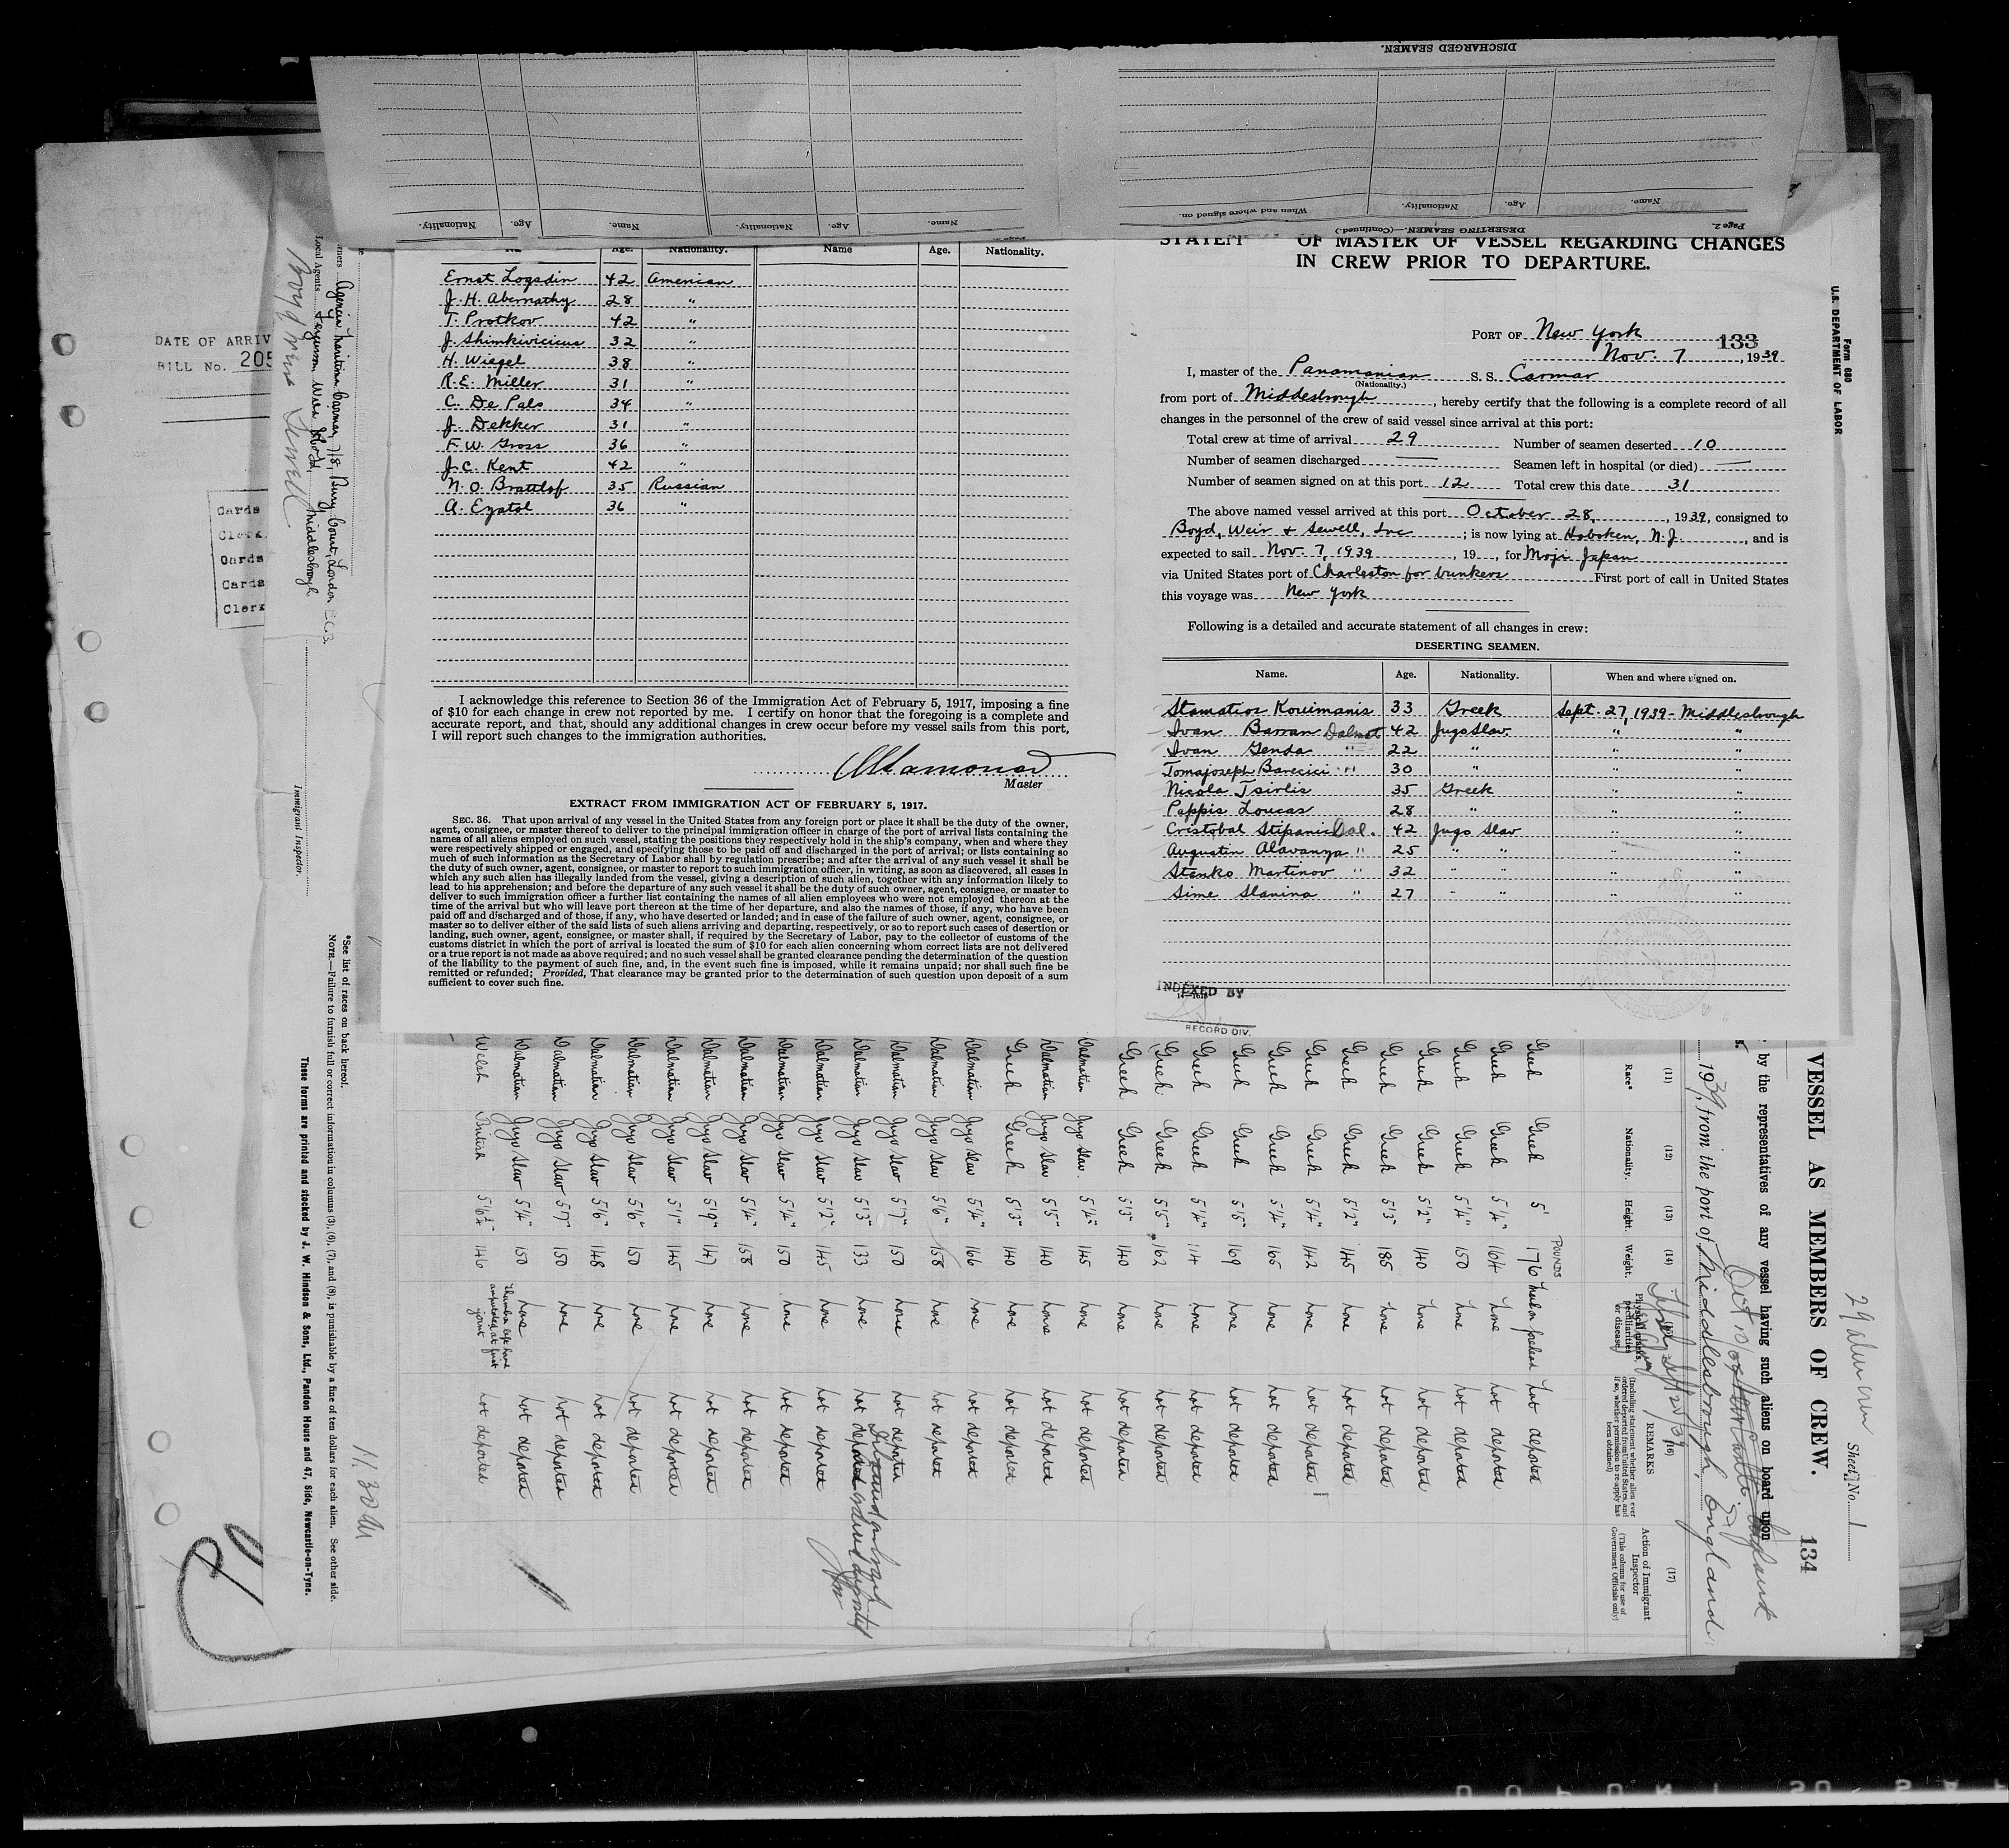 DISCHARGED SEAMEN.
Nationality. Age. Name. Nationality. Age. Name.
When and where signed on. Nationality. Age. Name.
DESERTING SEAMEN.—(Continued.) Page 2.
Age. Nationality. Name Age. Nationality.
Ernst Logsdin 42 American
J. H. Abernathy 28 "
T. Protkov 42 "
J. Shimkivicius 32 "
H. Wiegel 38 "
R. E. Miller 31 "
C. De Palo 34 "
J. Dekker 31 "
F. W. Gross 36 "
J. C. Kent 42 "
N. O. Brattlof 35 Russian
A. Ezatol 36 "
I acknowledge this reference to Section 36 of the Immigration Act of February 5, 1917, imposing a fine
of $10 for each change in crew not reported by me. I certify on honor that the foregoing is a complete and
accurate report, and that, should any additional changes in crew occur before my vessel sails from this port,
I will report such changes to the immigration authorities.
Master
EXTRACT FROM IMMIGRATION ACT OF FEBRUARY 5, 1917.
SEC. 36. That upon arrival of any vessel in the United States from any foreign port or place it shall be the duty of the owner,
agent, consignee, or master thereof to deliver to the principal immigration officer in charge of the port of arrival lists containing the
names of all aliens employed on such vessel, stating the positions they respectively hold in the ship's company, when and where they
were respectively shipped or engaged, and specifying those to be paid off and discharged in the port of arrival; or lists containing so
much of such information as the Secretary of Labor shall by regulation prescribe; and after the arrival of any such vessel it shall be
the duty of such owner, agent, consignee, or master to report to such immigration officer, in writing, as soon as discovered, all cases in
which any such alien has illegally landed from the vessel, giving a description of such alien, together with any information likely to
lead to his apprehension; and before the departure of any such vessel it shall be the duty of such owner, agent, consignee, or master to
deliver to such immigration officer a further list containing the names of all alien employees who were not employed thereon at the
time of the arrival but who will leave port thereon at the time of her departure, and also the names of those, if any, who have been
paid off and discharged and of those, if any, who have deserted or landed; and in case of the failure of such owner, agent, consignee, or
master so to deliver either of the said lists of such aliens arriving and departing, respectively, or so to report such cases of desertion or
landing, such owner, agent, consignee, or master shall, if required by the Secretary of Labor, pay to the collector of customs of the
customs district in which the port of arrival is located the sum of $10 for each alien concerning whom correct lists are not delivered
or a true report is not made as above required; and no such vessel shall be granted clearance pending the determination of the question
of the liability to the payment of such fine, and, in the event such fine is imposed, while it remains unpaid; nor shall such fine be
remitted or refunded; Provided, That clearance may be granted prior to the determination of such question upon deposit of a sum
sufficient to cover such fine.
Form 680
U.S. DEPARTMENT OF LABOR
STATEM OF MASTER OF VESSEL REGARDING CHANGES
IN CREW PRIOR TO DEPARTURE.
PORT OF New York 133
Nov. 7, 1939
I, master of the Panamanian S. S. Carmar
(Nationality.)
from port of Middlesbrough, hereby certify that the following is a complete record of all
changes in the personnel of the crew of said vessel since arrival at this port:
Total crew at time of arrival 29 Number of seamen deserted 10
Number of seamen discharged — Seamen left in hospital (or died) —
Number of seamen signed on at this port 12 Total crew this date 31
The above named vessel arrived at this port October 28, 1939, consigned to
Boyd, Weir & Sewell, Inc; is now lying at Hoboken, N.J., and is
expected to sail Nov. 7, 1939, 19, for Moji Japan
via United States port of Charleston for bunkers First port of call in United States
this voyage was New York
Following is a detailed and accurate statement of all changes in crew:
DESERTING SEAMEN.
Name. Age. Nationality. When and where signed on.
Stamatios Kouimanis 33 Greek Sept. 27, 1939 - Middlesbrough
Ivan Barran Dalmat 42 Jugo Slav. " "
Ivan Genda " 22 " " "
Tomajoseph Barecici " 30 " " "
Nicola Tsirlis 35 Greek " "
Pappis Loucas 28 " " "
Cristobal Stipanic Dal. 42 Jugo Slav " "
Augustin Alavanya " 25 " " " "
Stanko Martinov " 32 " " " "
Sime Slanina " 27 " " " "
INDEXED BY
RECORD DIV.
DATE OF ARRIV
BILL No. 205
Cards
Clerk
Cards
Cards
Clerk
Agencia Maritima Carmar, 7/8, Bury Court, London E.C.3.
Local Agents Ferguson Wild Middlesbrough
Boyd Weir Sewell
Immigrant Inspector.
*See list of races on back hereof.
NOTE.—Failure to furnish full or correct information in columns (3), (6), (7), and (8), is punishable by a fine of ten dollars for each alien. See other side.
These forms are printed and stocked by J. W. Hindson & Sons, Ltd., Pandon House and 47, Side, Newcastle-on-Tyne.
11.30 AM
29 alien men Sheet No. 1
VESSEL AS MEMBERS OF CREW. 134
by the representatives of any vessel having such aliens on board upon
1939, from the port of Middlesbrough, England
(11) (12) (13) (14) (16) (17)
Race* Nationality. Height. Weight. Physical marks, peculiarities or disease REMARKS Action of Immigrant Inspector
(Including statement whether alien ever ordered deported from United States, and if so, whether permission to re-apply has been obtained)
(This column for use of Government Officials only)
POUNDS
Greek Greek 5' 176 not deported
Greek Greek 5'4" 164 none not deported
Greek Greek 5'4" 150 none not deported
Greek Greek 5'2" 140 none not deported
Greek Greek 5'3" 185 none not deported
Greek Greek 5'2" 145 none not deported
Greek Greek 5'4" 142 none not deported
Greek Greek 5'4" 165 none not deported
Greek Greek 5'5" 169 none not deported
Greek Greek 5'4" none not deported
Greek Greek 5'5" 162 none not deported
Greek Greek 5'3" 140 none not deported
Dalmatian Jugo Slav 5'4" 145 none not deported
Dalmatian Jugo Slav 5'5" 140 none not deported
Greek Greek 5'3" 140 none not deported
Dalmatian Jugo Slav 5'4" 166 none not deported
Dalmatian Jugo Slav 5'6" 158 none not deported
Dalmatian Jugo Slav 5'7" 150 none not deported
Dalmatian Jugo Slav 5'3" 133 none not deported
Dalmatian Jugo Slav 5'2" 145 none not deported
Dalmatian Jugo Slav 5'4" 150 none not deported
Dalmatian Jugo Slav 5'4" 158 none not deported
Dalmatian Jugo Slav 5'9" 147 none not deported
Dalmatian Jugo Slav 5'1" 145 none not deported
Dalmatian Jugo Slav 5'6" 150 none not deported
Dalmatian Jugo Slav 5'6" 148 none not deported
Dalmatian Jugo Slav 5'7" 150 none not deported
Dalmatian Jugo Slav 5'4" 150 none not deported
Welsh British 146 thumb on left hand amputated at first joint not deported